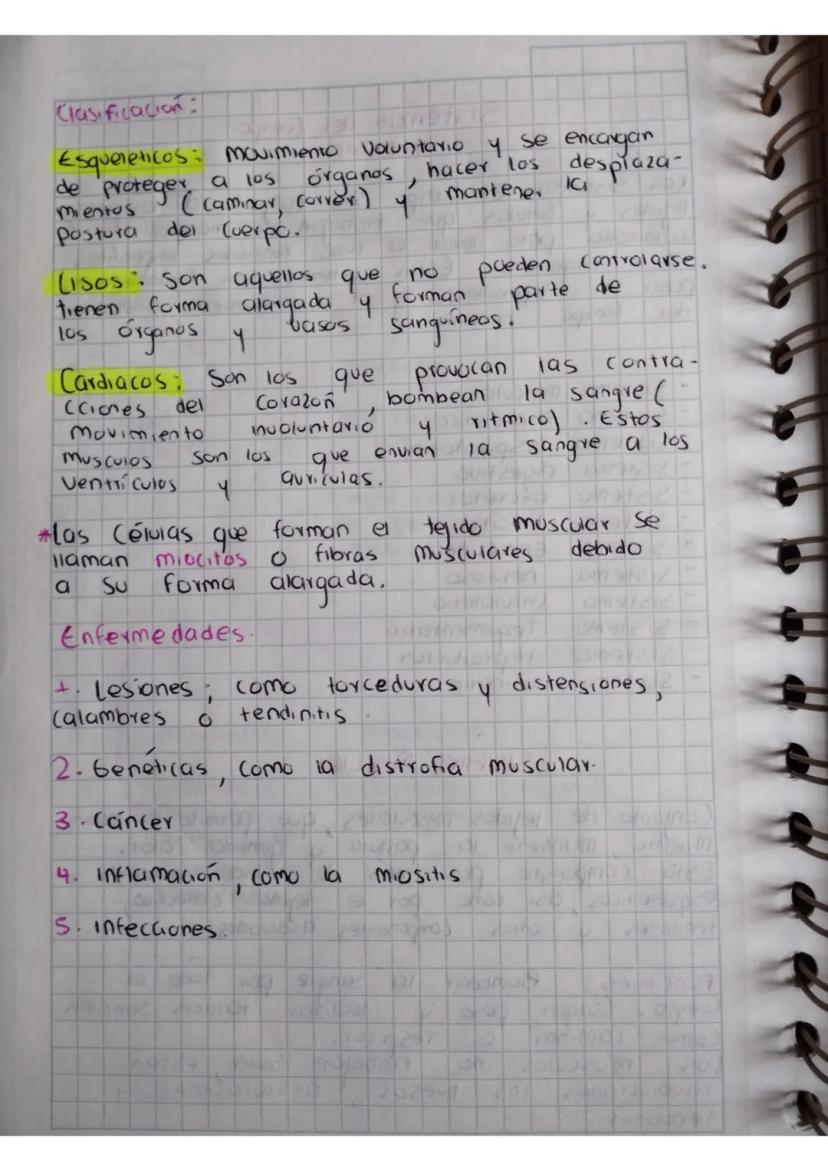 Clasificación:
Esqueleticos: movimiento voluntario y se encargan
de proteger a los órganos, hacer los desplaza-
mientos (caminar, correr) y mantener la
postura del cuerpo.
Lisos: son aquellos que no pueden controlarse.
tienen forma alargada y forman parte de
los órganos y vasos sanguíneos.
Cardiacos: son los que provocan las contra-
cciones del corazón, bombean la sangre (
movimiento involuntario y ritmico). Estos
musculos son los que envian la sangre a los
ventrículos y aurículas.
*las células que forman el tejido muscular se
llaman miocitos o fibras musculares debido
a su forma alargada.
Enfermedades.
1. Lesiones; como torceduras y distensiones,
calambres o tendinitis.
2. Genéticas, como la distrofia muscular.
3. Cáncer
4. inflamación, como la miositis
5. infecciones.